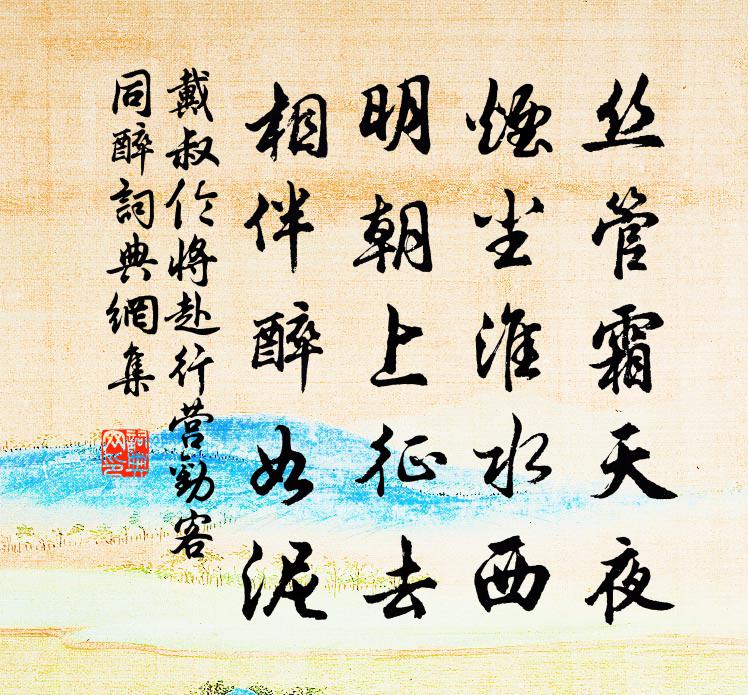 丝管霜天夜
烟尘淮水西
明朝上征去
相伴醉如泥
戴叔伦将赴行营劝客
同醉詞典網集
詞典網印